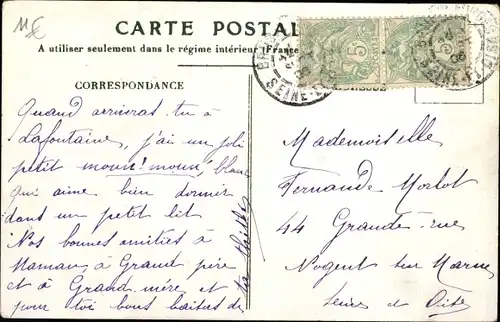 M€
CARTE POSTAL
A utiliser seulement dans le régime intérieur (France
CORRESPONDANCE
Quand arriveras tu à
Lafontaine, j'ai un joli
petit moun! moun, blanc
qui aime bien dormir
dans un petit lit
Nos bonnes amitiés à
Maman à Grand père
et à Grand-mère et
pour toi bons baisers de
ta
Mademoiselle
Fernande Morlot
44 Grande rue
Nogent sur Marne
Seine et Oise
SEINE-E
5
5
08